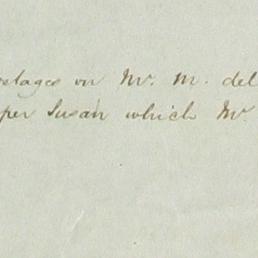 ostages on Mr. M. del
per Susan which Mr.